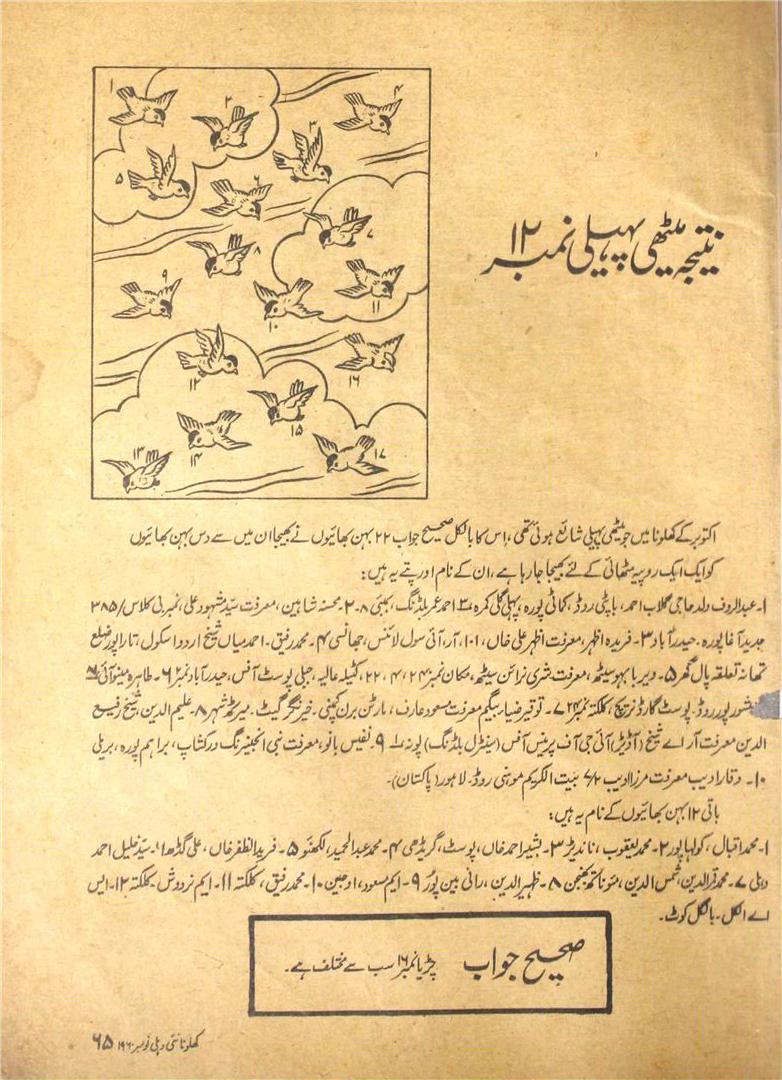 نتیجہ میٹھی پہیلی نمبر ۱۲
۱
۲
۳
۴
۵
۶
۷
۸
۹
۱۰
۱۱
۱۲
۱۳
۱۴
۱۵
۱۶
۱۷
اکتوبر کے کھلونا میں جو میٹھی پہیلی شائع ہوئی تھی، اس کا بالکل صحیح جواب ۲۲ بہن بھائیوں نے بھیجا ان میں سے دس بہن بھائیوں
کو ایک ایک روپیہ مٹھائی کے لئے بھیجا جا رہا ہے، ان کے نام اور پتے یہ ہیں:
۱۔ عبدالروف ولد حاجی گلاب احمد، باپٹی روڈ، کماٹی پورہ، پہلی گلی کمرہ ۳ احمد عمر بلڈنگ، بمبئی ۸۔ ۲۔ محسنہ شاہین، معرفت سید مشہود علی، نمبر بی کلاس/۳۸۵
جدید آغا پورہ۔ حیدرآباد ۳۔ فریدہ اظہر، معرفت اظہر علی خاں، ۱۰۱، آر، آئی سول لائنس، جھانسی ۴۔ محمد رفیق۔ احمد میاں شیخ اردو اسکول، تاراپور ضلع
تھانہ تعلقہ پال گھر ۵۔ ویربا بہو سیٹھ، معرفت شری نرائن سیٹھ، مکان نمبر ۲۴، ۴، ۲۲، کٹیلہ عالیہ، جبلی پوسٹ آفس، حیدرآباد نمبر ۲ ۶۔ طاہرہ
شور پور روڈ۔ پوسٹ گارڈن ریچ، کلکتہ نمبر ۲۴ ۷۔ توقیر ضیاء بیگم معرفت مسعود عارف، مارٹن برن کمپنی۔ خیرنگر گیٹ۔ میرٹھ شہر ۸۔ علیم الدین، شیخ رفیع
الدین معرفت آر اے شیخ (آڈیٹر) آئی جی آف پریزنس آفس (سینٹرل بلڈنگ) پونہ ۱ ۹۔ نفیس بانو، معرفت نبی انجینئرنگ ورکشاپ، براہم پورہ، بریلی
۱۰۔ وقار ادیب معرفت مرزا ادیب ۷/۲ بیت الکریم موہنی روڈ۔ لاہور (پاکستان)۔
باقی ۱۲ بہن بھائیوں کے نام یہ ہیں:
۱۔ محمد اقبال، کولہاپور ۲۔ محمد یعقوب، ناندیڑ ۳۔ بشیر احمد خاں، پوسٹ، گریڈھی ۴۔ محمد عبدالحمید، لکھنؤ ۵۔ فرید الظفر خاں، علی گڈھ ۶۔ سید خلیل احمد
دہلی ۷۔ محمد قمرالدین، شمس الدین، مئوناتھ بھنجن ۸۔ ظہیر الدین، رانی بین پور ۹۔ ایم مسعود، اوجین ۱۰۔ محمد رفیق، کلکتہ ۱۱۔ ایم نردوش۔ کلکتہ ۱۲۔ ایس
اے الکل۔ باگل کوٹ۔
صحیح جواب چڑیا نمبر ۱۶ سب سے مختلف ہے۔
کھلونا نئی دہلی نومبر ۱۹۶۰ ۶۵